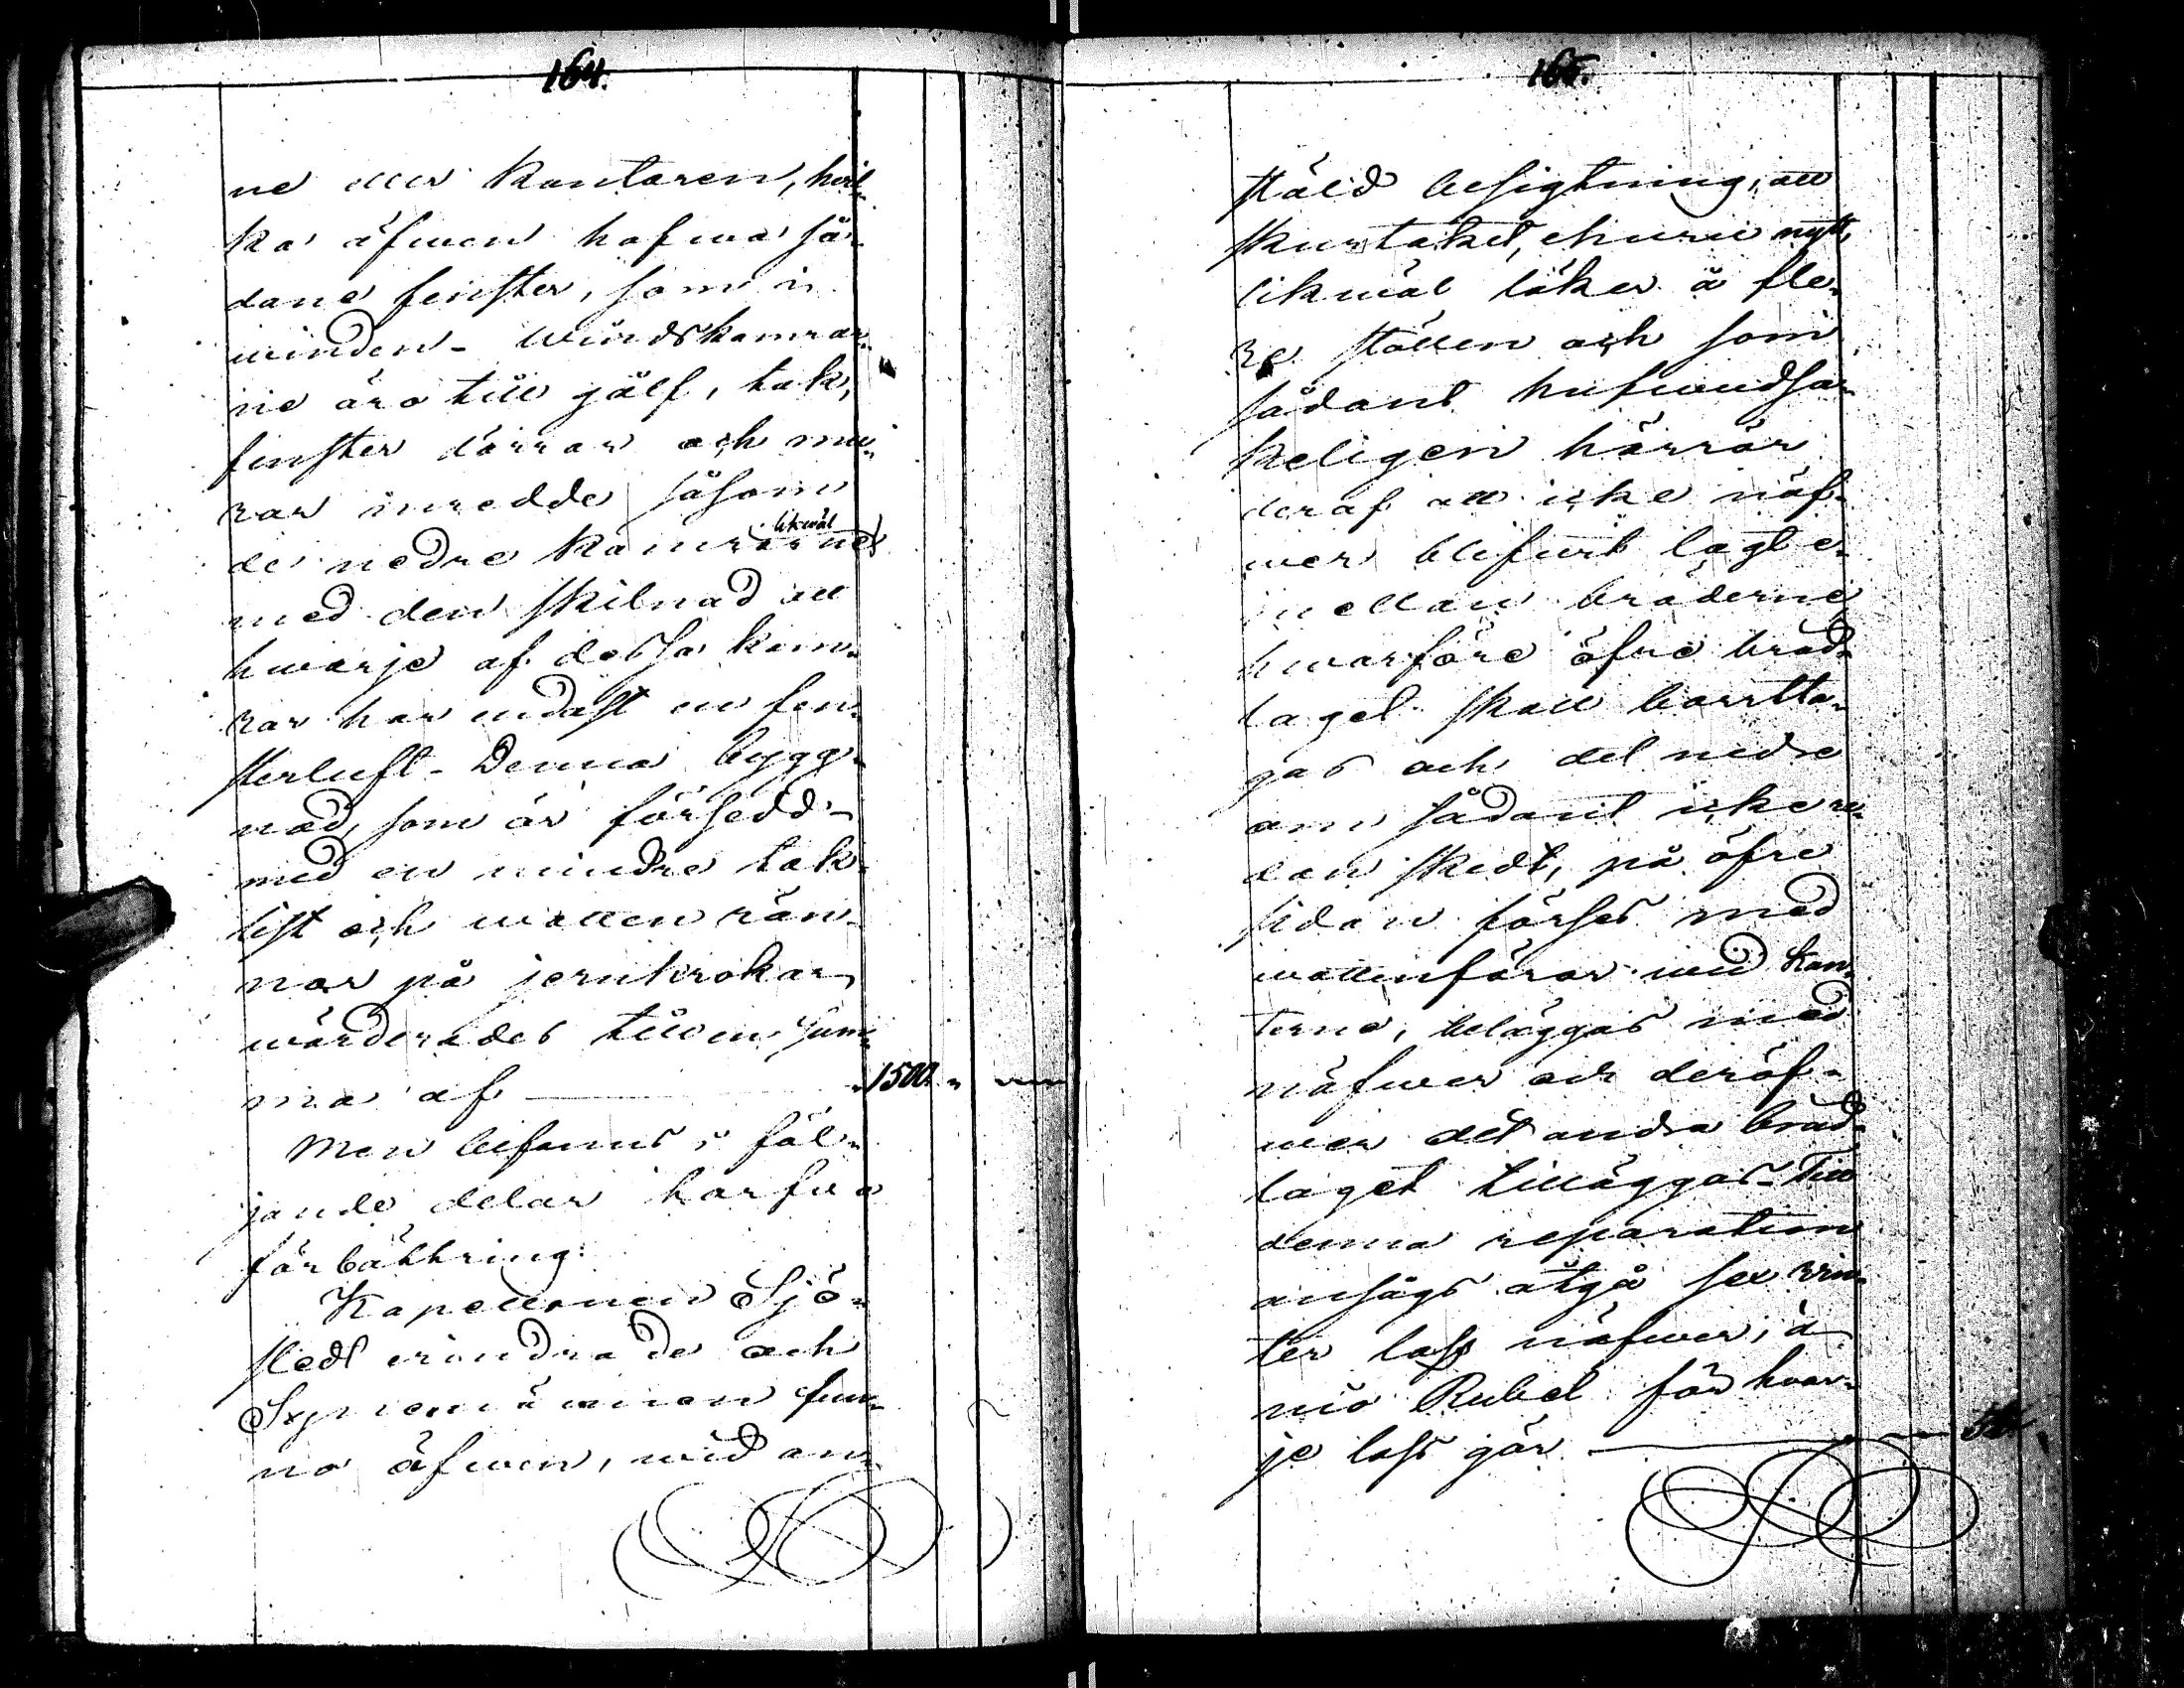 164.
ne eller Kontoren, hvil-
ka äfwen hafwa så-
dane fenster, som in
winden - Windskamrar-
ne äro till gålf, tak,
fenster dörrar och mu-
rar inredde såsom
likwäl
de nedre kamrarne
med den skilnad att
hwarje af dessa kam-
rar har endast en fen-
sterluft - Denna bygg-
nad, som är försedd
med en mindre tak-
list och watten rän-
nor på jernkrokar
wärderades till en sum-
ma af — 1500.
Men befanns i föl-
jande delar tarfwa
förbättring:
Kapellanen Sjö-
stedt erindrade och
Synemännen fun-
no äfwen, wid an-
165.
stäld besigtning, att
skurtaket, ehuru nytt,
likwäl läker å fle-
re ställen och som
sådant hufwudsa-
keligen härrör
deraf att icke näf-
wer blifwit lagt e-
mellan bräderne
hwarföre öfre bräd-
laget skall bortta-
gas och det nedre
om sådant icke re-
dan skedt, på öfre
sidan förses med
wattenfåror wid kan-
terne, beläggas med
näfwer och deröf-
wer det andra bräd-
laget tilläggas - Till
denna reparation
ansågs åtgå sex win-
ter lass näfwer, à
nio Rubel för hwar-
je lass gör — 54